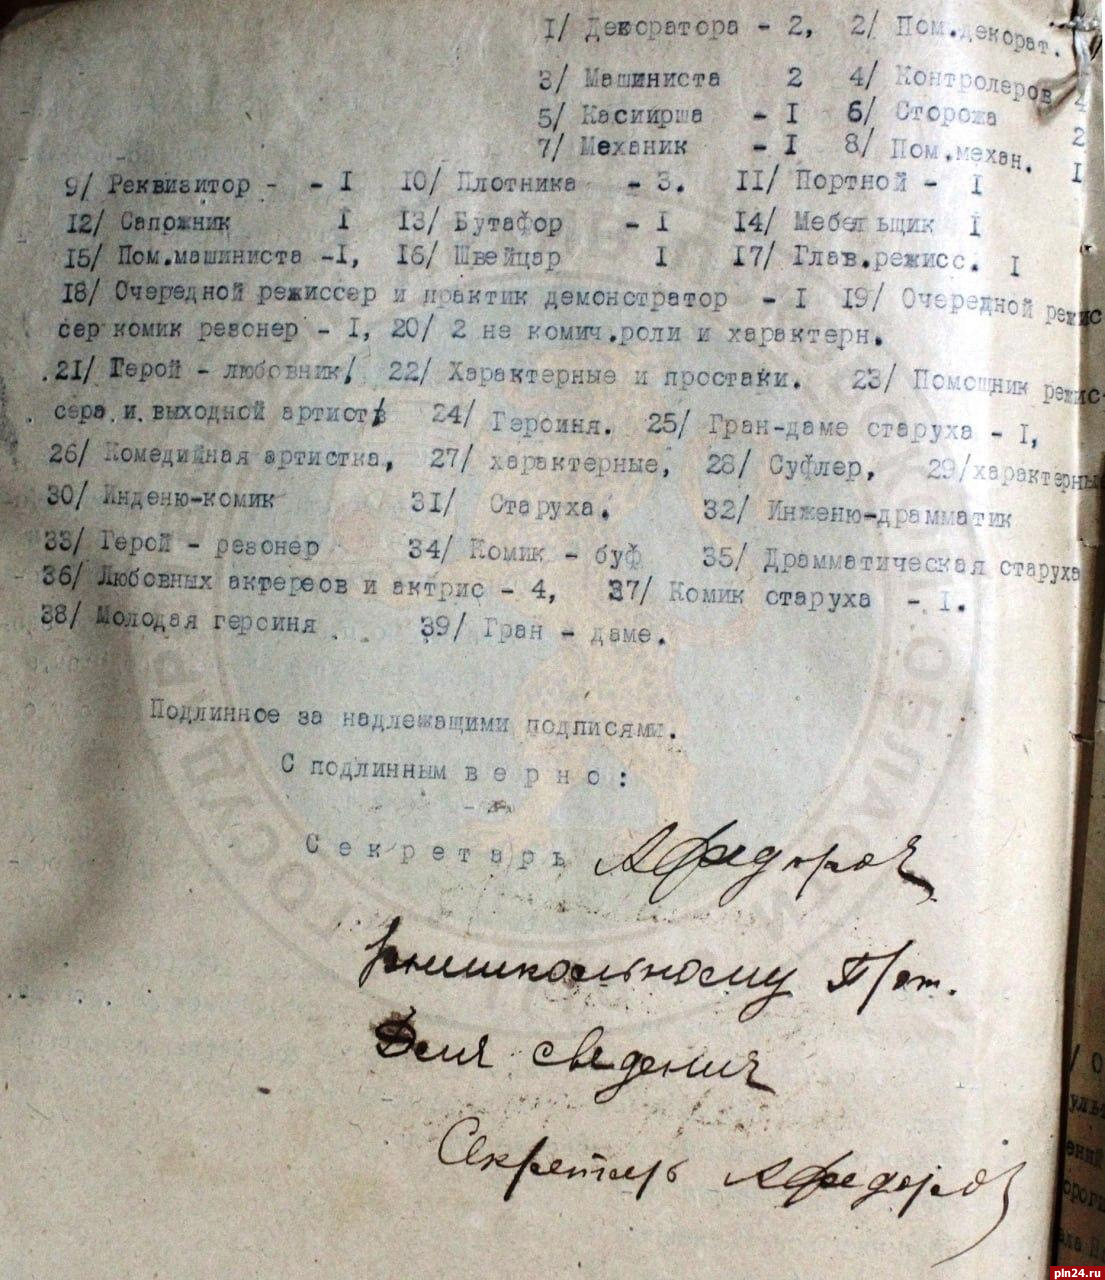 I/ Декоратора - 2, 2/ Пом.декорат.
3/ Машиниста 2 4/ Контролеров 4
5/ Касиирша - I 6/ Сторожа 2
7/ Механик - I 8/ Пом.механ. I
9/ Реквизитор - - I IO/ Плотника - 3. II/ Портной - I
I2/ Сапожник I I3/ Бутафор - I I4/ Мебельщик I
I5/ Пом.машиниста -I, I6/ Швейцар I I7/ Глав.режисс. I
I8/ Очередной режиссер и практик демонстратор - I I9/ Очередной режис
сер комик резонер - I, 20/ 2 не комич.роли и характерн.
21/ Герой - любовник/ 22/ Характерные и простаки. 23/ Помощник режис-
сера и выходной артист 24/ Героиня. 25/ Гран-даме старуха - I,
26/ Комедийная артистка, 27/ характерные, 28/ Суфлер, 29/характерны
30/ Инденю-комик 3I/ Старуха. 32/ Инженю-драмматик
33/ Герой - резонер 34/ Комик - буф 35/ Драмматическая старуха
36/ Любовных актереов и актрис - 4, 37/ Комик старуха - I.
38/ Молодая героиня 39/ Гран - даме.
Подлинное за надлежащими подписями.
С подлинным верно:
Секретарь АФедоров
Внешкольному П/от.
Для сведения
Секретарь АФедоров
pln24.ru